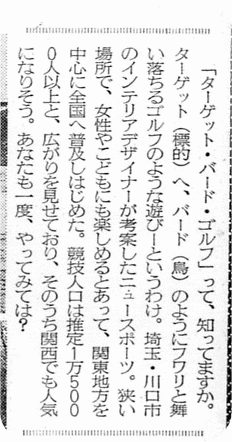 「ターゲット・バード・ゴルフ」って、知ってますか。
ターゲット（標的）へ、バード（鳥）のようにフワリと舞
い落ちるゴルフのような遊びーというわけ。埼玉・川口市
のインテリアデザイナーが考案したニュースポーツ。狭い
場所で、女性やこどもにも楽しめるとあって、関東地方を
中心に全国へ普及しはじめた。競技人口は推定1万500
0人以上と、広がりを見せており、そのうち関西でも人気
になりそう。あなたも一度、やってみては？